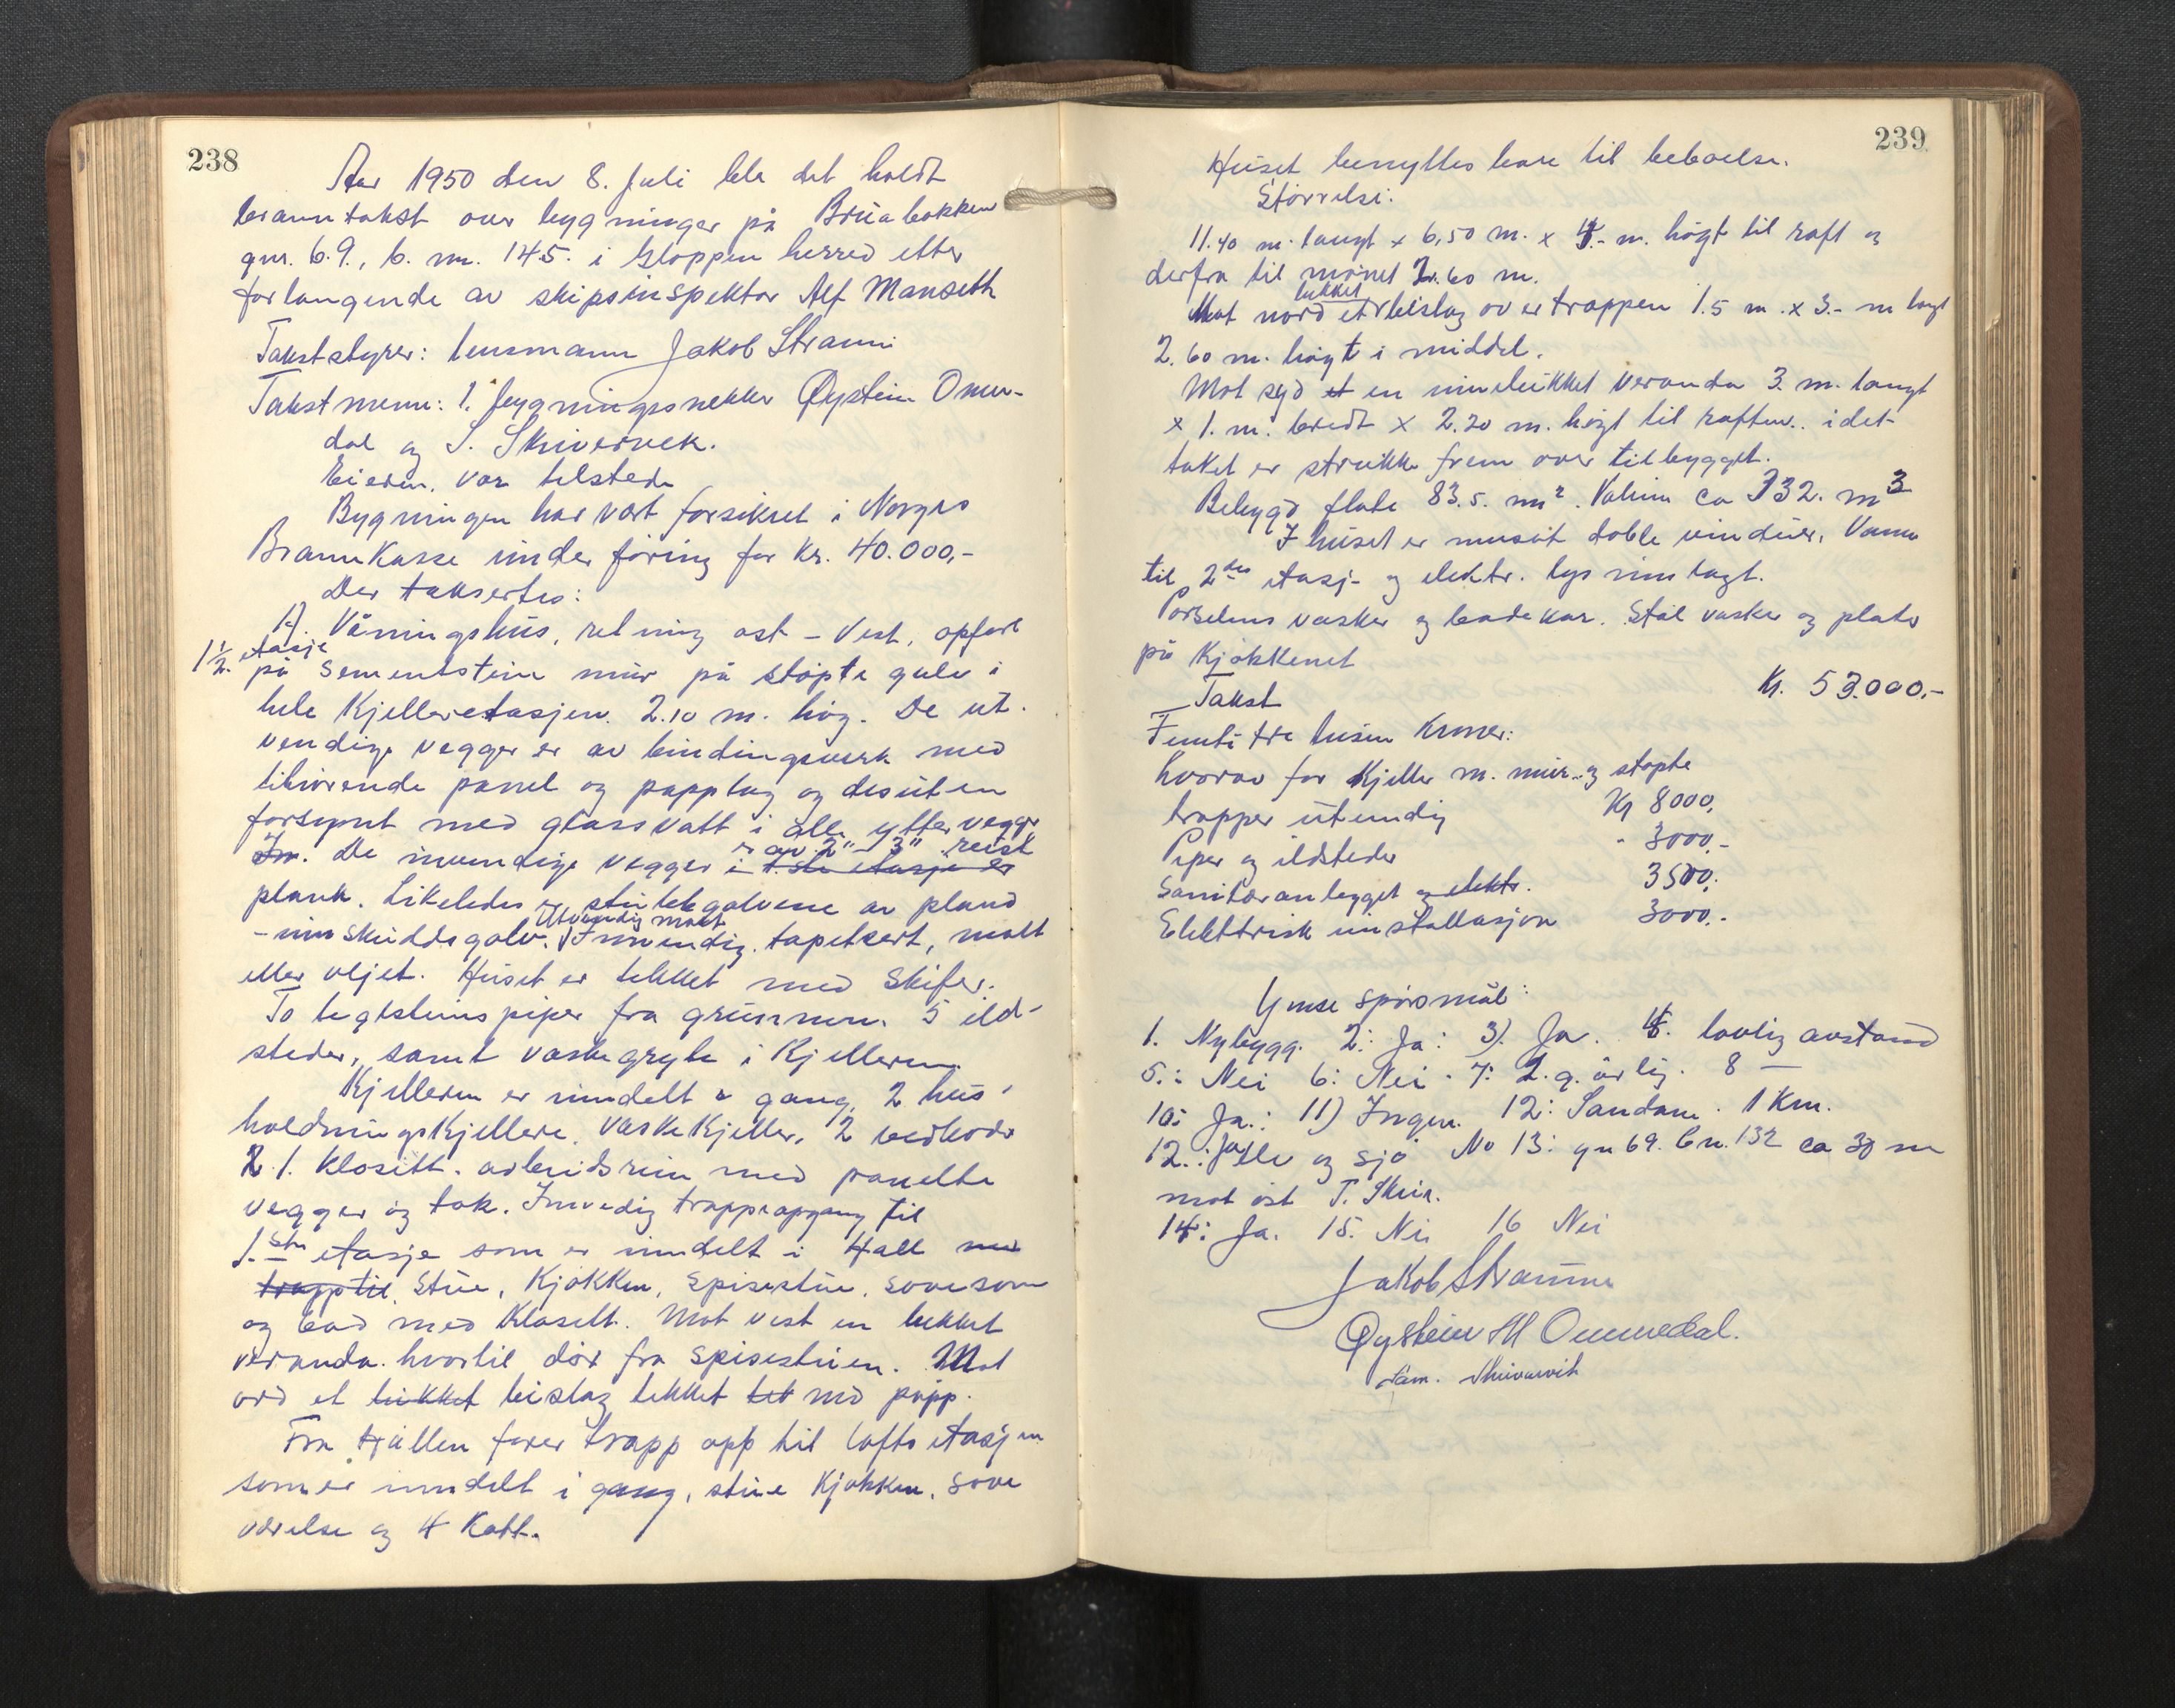 238
Aar 1950 den 8. Juli ble det holdt
branntakst over bygninger på Bruabakken
gnr. 69., b. nr. 145. i Gloppen herred etter
forlangende av skipsinspektør Alf Mardseth
Takststyrer: lensmann Jakob Straume
Takstmenn: 1. bygningssnekker Øystein Ommedal
dal og S. Skivervek.
Eieren. var tilstede
Bygningen har vært forsikret i Norges
BrannKasse under føring for Kr. 40.000,-
Der taksertes:
1). Våningshus, retning ost - Vest, opført
1 1/2. etasje
på Sementstein mur på støpte gulv i
hele Kjelleretasjen. 2.10 m. høg. De ut-
vendige vegger er av bindingsverk med
tilhørende panel og papplag og desuten
forsynt med glassvatt i alle yttervegger
er av 2" - 3" reist
Inn. De invendige vegger i 1.ste etasje er
plank. Likeledes er stubbegolvene av pland
Utvendig malt
- innskuddsgolv. Innvendig tapetsert, malt
eller oljet. Huset er tekket med Skifer.
To teglsteinspiper fra grunnen. 5 ild-
steder, samt vaskegryte i Kjelleren.
Kjelleren er inndelt i gang, 2 hus-
holdningsKjellere, VaskeKjeller, 2 vedboder
1. Klosett. arbeidsrum med panelte
vegger og tak. Invedig trappeopgang til
1.ste etasje som er inndelt i Hall med
trapp til Stue, Kjøkken, Spisestue, soverom
og bad med Klosett. Mot vest en lukket
veranda. hvortil dør fra Spisestuen. Mot
ord et lukket bislag tekket tet med papp.
Fra Hallen fører trapp opp til loftsetasjen
som er inndelt i gang, stue Kjøkken, sove
værelse og 4 Kott.
239
Huset benyttes bare til beboelse.
Størrelse:
11.40 m. langt x 6,50 m. x 4.- m. høgt til raft og
derfra til mønet 2.60 m.
lukket
Mot nord et bislag over trappen 1.5 m. x 3.- m langt
2.60 m. høgt i middel.
Mot syd et en innelukket Veranda 3. m. langt
x 1. m. bredt x 2.20 m. høgt til raften.. idet
taket er strukke frem over tilbygget.
Bebygd flate 83.5. m². Volum ca 332. m3
I huset er innsat doble vinduer. Vann
til 2den etasje og elektr. lys innlagt.
Porselens vasker og badekar. Stål vasker og plater
på Kjøkkenet
Takst Kr. 53.000,-
Femti tre tusen Kroner:
hvorav for Kjeller m. mur. og støpte
trapper utvendig Kr 8000,
Piper og ildsteder " 3000.-
Sanitæranlegget og elektr. 3500.
Elektrisk installasjon 3000.-
Ymse spørsmål:
1. Nybygg. 2: Ja: 3). Ja. 4. lovlig avstand
5.: Nei 6: Nei. 7: 2. g. årlig. 8 —
10: Ja.: 11) Ingen. 12: Sandane. 1 Km.
12.: Ja Elv og sjø No 13: gn 69. bn. 132 ca 30 m
mot øst T. Skin.
14: Ja. 15. Nei 16 Nei
Jakob Straume
Øystein M Ommedal.
Sam. Skivervik